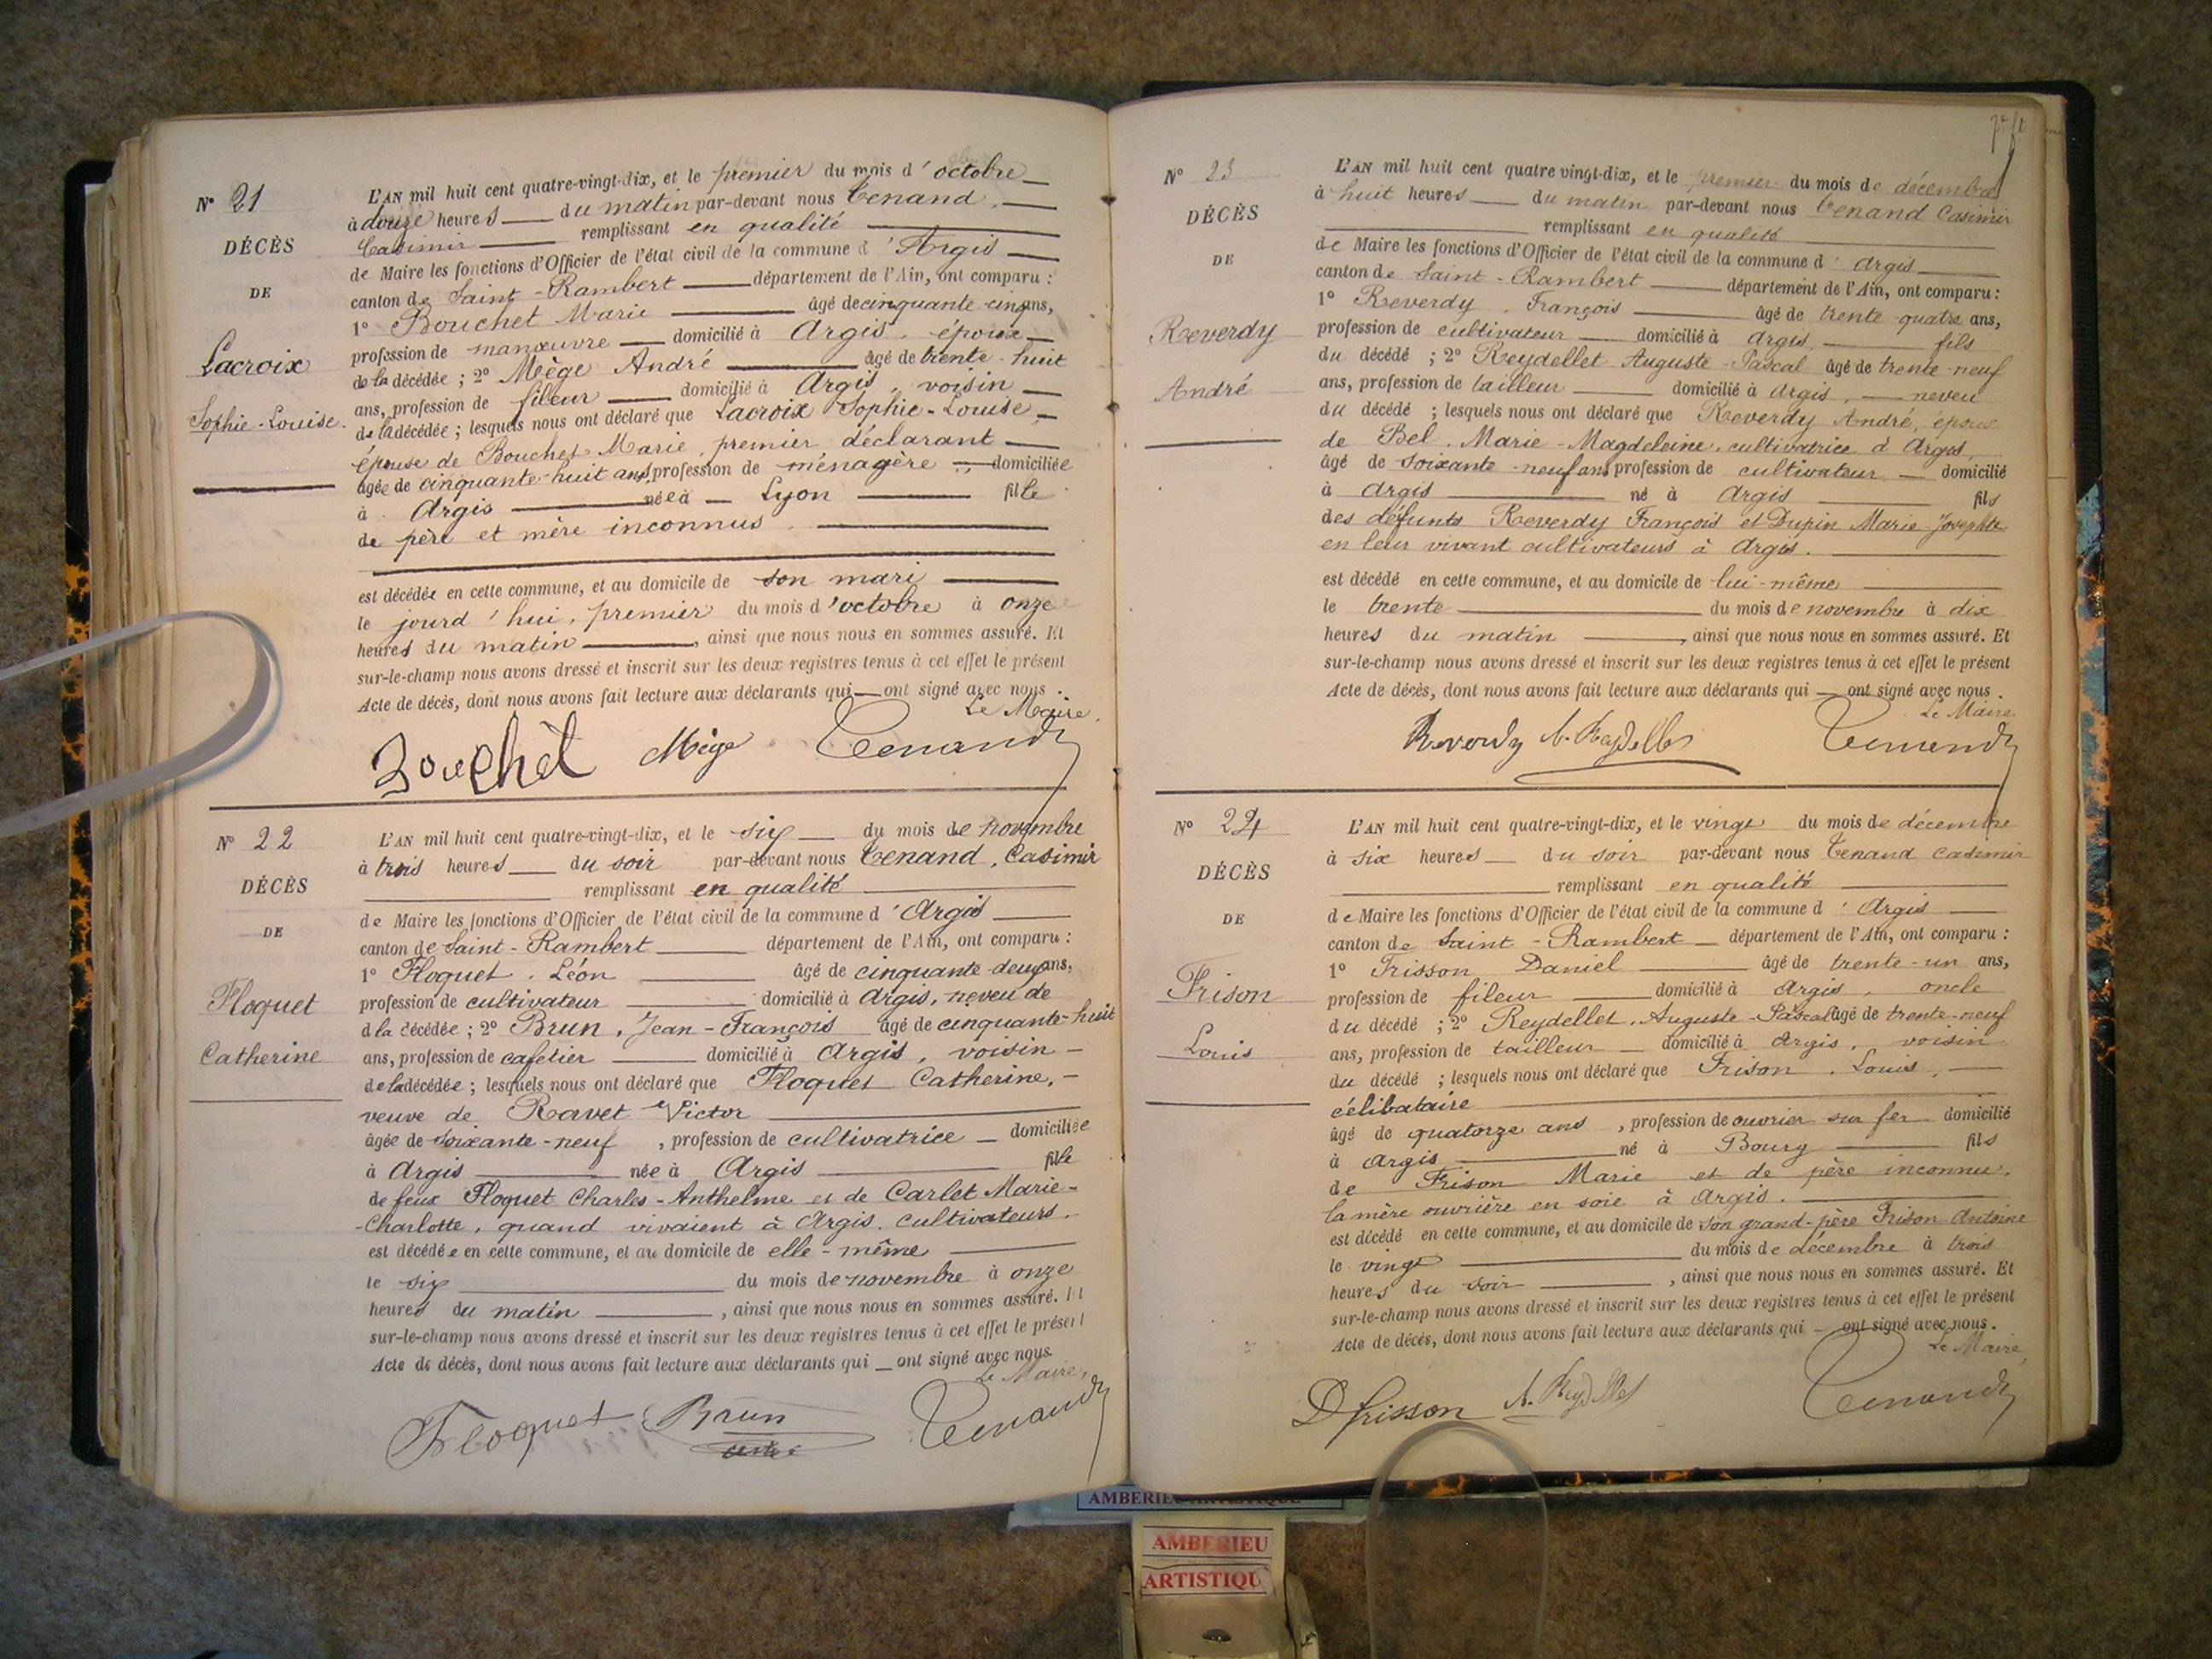 N° 21
DÉCÈS
DE
Lacroix
Sophie-Louise.
L'AN mil huit cent quatre-vingt-dix, et le premier du mois d'octobre
à douze heures du matin par-devant nous Tenand,
Casimir remplissant en qualité
de Maire les fonctions d'Officier de l'état civil de la commune d'Argis
canton de Saint-Rambert département de l'Ain, ont comparu :
1° Bouchet Marie âgé de cinquante-cinq ans,
profession de manœuvre domicilié à Argis, époux
de la décédée ; 2° Mège André âgé de trente-huit
ans, profession de fileur domicilié à Argis, voisin
de la décédée ; lesquels nous ont déclaré que Lacroix Sophie-Louise,
épouse de Bouchet Marie, premier déclarant
âgée de cinquante-huit ans, profession de ménagère domiciliée
à Argis née à Lyon fille
de père et mère inconnus.
est décédée en cette commune, et au domicile de son mari
le jourd'hui, premier du mois d'octobre à onze
heures du matin, ainsi que nous nous en sommes assuré. Et
sur-le-champ nous avons dressé et inscrit sur les deux registres tenus à cet effet le présent
Acte de décès, dont nous avons fait lecture aux déclarants qui ont signé avec nous.
Le Maire,
Bouchet Mège Tenand
N° 22
DÉCÈS
DE
Floquet
Catherine
L'AN mil huit cent quatre-vingt-dix, et le six du mois de novembre
à trois heures du soir par-devant nous Tenand, Casimir
remplissant en qualité
de Maire les fonctions d'Officier de l'état civil de la commune d'Argis
canton de Saint-Rambert département de l'Ain, ont comparu :
1° Floquet, Léon âgé de cinquante-deux ans,
profession de cultivateur domicilié à Argis, neveu de
d la décédée ; 2° Brun, Jean-François âgé de cinquante-huit
ans, profession de cafetier domicilié à Argis, voisin
de la décédée ; lesquels nous ont déclaré que Floquet Catherine,
veuve de Ravet Victor
âgée de soixante-neuf, profession de cultivatrice domiciliée
à Argis née à Argis fille
de feux Floquet Charles-Anthelme et de Carlet Marie-
-Charlotte, quand vivaient à Argis, cultivateurs.
est décédée en cette commune, et au domicile de elle-même
le six du mois de novembre à onze
heures du matin, ainsi que nous nous en sommes assuré. Et
sur-le-champ nous avons dressé et inscrit sur les deux registres tenus à cet effet le présent
Acte de décès, dont nous avons fait lecture aux déclarants qui ont signé avec nous
Le Maire,
Floquet Brun Tenand
N° 23
DÉCÈS
DE
Reverdy
André
L'AN mil huit cent quatre vingt-dix, et le premier du mois de décembre
à huit heures du matin par-devant nous Tenand Casimir
remplissant en qualité
de Maire les fonctions d'Officier de l'état civil de la commune d'Argis
canton de Saint-Rambert département de l'Ain, ont comparu :
1° Reverdy, François âgé de trente-quatre ans,
profession de cultivateur domicilié à Argis, fils
du décédé ; 2° Reydellet Auguste-Pascal âgé de trente-neuf
ans, profession de tailleur domicilié à Argis, neveu
du décédé ; lesquels nous ont déclaré que Reverdy André, époux
de Bel, Marie-Magdeleine, cultivatrice à Argis,
âgé de soixante-neuf ans profession de cultivateur domicilié
à Argis né à Argis fils
des défunts Reverdy François et Dupin Marie-Josephte
en leur vivant cultivateurs à Argis.
est décédé en cette commune, et au domicile de lui-même
le trente du mois de novembre à dix
heures du matin, ainsi que nous nous en sommes assuré. Et
sur-le-champ nous avons dressé et inscrit sur les deux registres tenus à cet effet le présent
Acte de décès, dont nous avons fait lecture aux déclarants qui ont signé avec nous.
Le Maire
Reverdy A. Reydellet Tenand
N° 24
DÉCÈS
DE
Frison
Louis
L'AN mil huit cent quatre-vingt-dix, et le vingt du mois de décembre
à six heures du soir par-devant nous Tenand Casimir
remplissant en qualité
de Maire les fonctions d'Officier de l'état civil de la commune d'Argis
canton de Saint-Rambert département de l'Ain, ont comparu :
1° Frisson Daniel âgé de trente-un ans,
profession de fileur domicilié à Argis, oncle
du décédé ; 2° Reydellet, Auguste-Pascal âgé de trente-neuf
ans, profession de tailleur domicilié à Argis, voisin
du décédé ; lesquels nous ont déclaré que Frison, Louis,
célibataire
âgé de quatorze ans, profession de ouvrier sur fer domicilié
à Argis né à Bourg fils
de Frison Marie et de père inconnu,
la mère ouvrière en soie à Argis.
est décédé en cette commune, et au domicile de son grand-père Frison Antoine
le vingt du mois de décembre à trois
heures du soir, ainsi que nous nous en sommes assuré. Et
sur-le-champ nous avons dressé et inscrit sur les deux registres tenus à cet effet le présent
Acte de décès, dont nous avons fait lecture aux déclarants qui ont signé avec nous.
Le Maire,
D frisson A. Reydellet Tenand
AMBERIEU ARTISTIQUE
AMBERIEU
ARTISTIQU